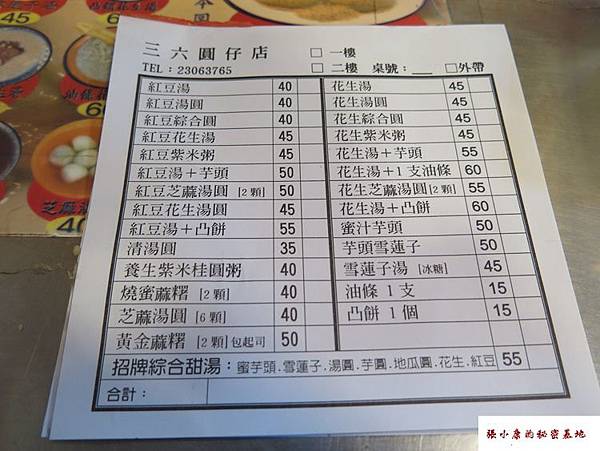 三六圓仔店 □ 一樓
TEL：23063765 □ 二樓 桌號：__ □外帶
紅豆湯 40 花生湯 45
紅豆湯圓 40 花生湯圓 45
紅豆綜合圓 40 花生綜合圓 45
紅豆花生湯 45 花生紫米粥 45
紅豆紫米粥 45 花生湯＋芋頭 55
紅豆湯＋芋頭 50 花生湯＋1支油條 60
紅豆芝蔴湯圓 [2顆] 50 花生芝蔴湯圓[2顆] 55
紅豆花生湯圓 45 花生湯＋凸餅 60
紅豆湯＋凸餅 55 蜜汁芋頭 50
清湯圓 35 芋頭雪蓮子 50
養生紫米桂圓粥 40 雪蓮子湯 [冰糖] 45
燒蜜蔴糬 [2顆] 40 油條1支 15
芝蔴湯圓 [6顆] 40 凸餅1個 15
黃金蔴糬 [2顆]包起司 50
招牌綜合甜湯：蜜芋頭.雪蓮子.湯圓.芋圓.地瓜圓.花生.紅豆 55
合計：
45
芝蔴湯
40
張小康的秘密基地